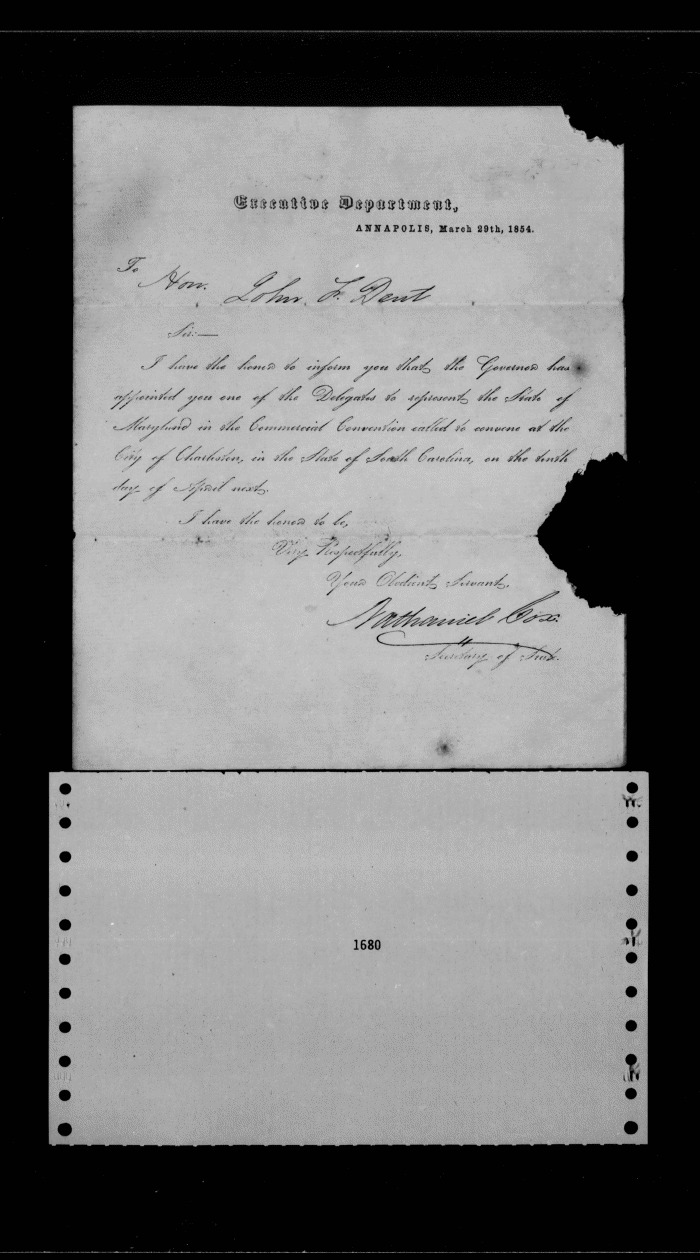 Executive Department,
ANNAPOLIS, March 29th, 1854.
To
Hon. John F. Dent
Sir:—
I have the honor to inform you that the Governor has
appointed you one of the Delegates to represent the State of
Maryland in the Commercial Convention called to convene at the
City of Charleston, in the State of South Carolina, on the tenth
day of April next.
I have the honor to be,
Very Respectfully,
Your Obedient Servant,
Nathaniel Cox.
Secretary of State.
1680